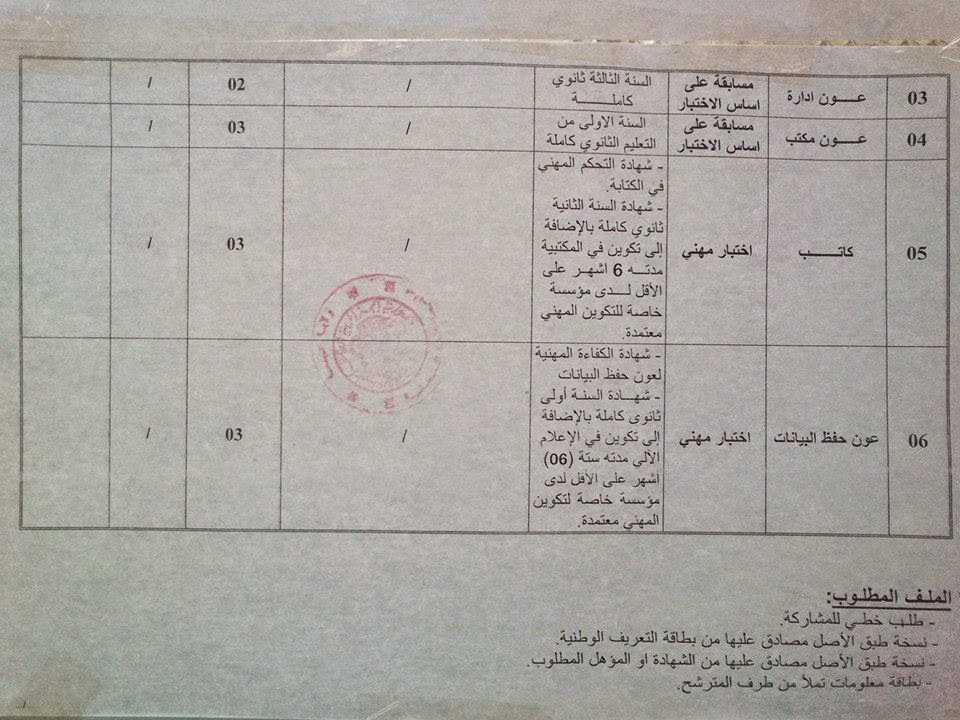 03 عـــون ادارة مسابقة على السنة الثالثة ثانوي / 02 /
اساس الاختبار كاملـــــة
04 عـــون مكتب مسابقة على السنة الاولى من / 03 /
اساس الاختبار التعليم الثانوي كاملة
05 كاتـــب اختبار مهني - شهادة التحكم المهني / 03 /
في الكتابة.
- شهادة السنة الثانية
ثانوي كاملة بالإضافة
إلى تكوين في المكتبية
مدتـــه 6 اشهـر على
الأقل لـــدى مؤسسة
خاصة للتكوين المهني
معتمدة.
06 عون حفظ البيانات اختبار مهني - شهادة الكفاءة المهنية / 03 /
لعون حفظ البيانات
- شهـــادة السنة أولى
ثانوي كاملة بالإضافة
إلى تكوين في الإعلام
الآلي مدته ستة (06)
أشهر على الأقل لدى
مؤسسة خاصة لتكوين
المهني معتمدة.
الملـف المطلـوب:
- طلـب خطـي للمشاركة.
- نسخة طبق الأصل مصادق عليها من بطاقة التعريف الوطنية.
- نسخة طبق الأصل مصادق عليها من الشهادة او المؤهل المطلوب.
- بطاقة معلومات تملأ من طرف المترشح.